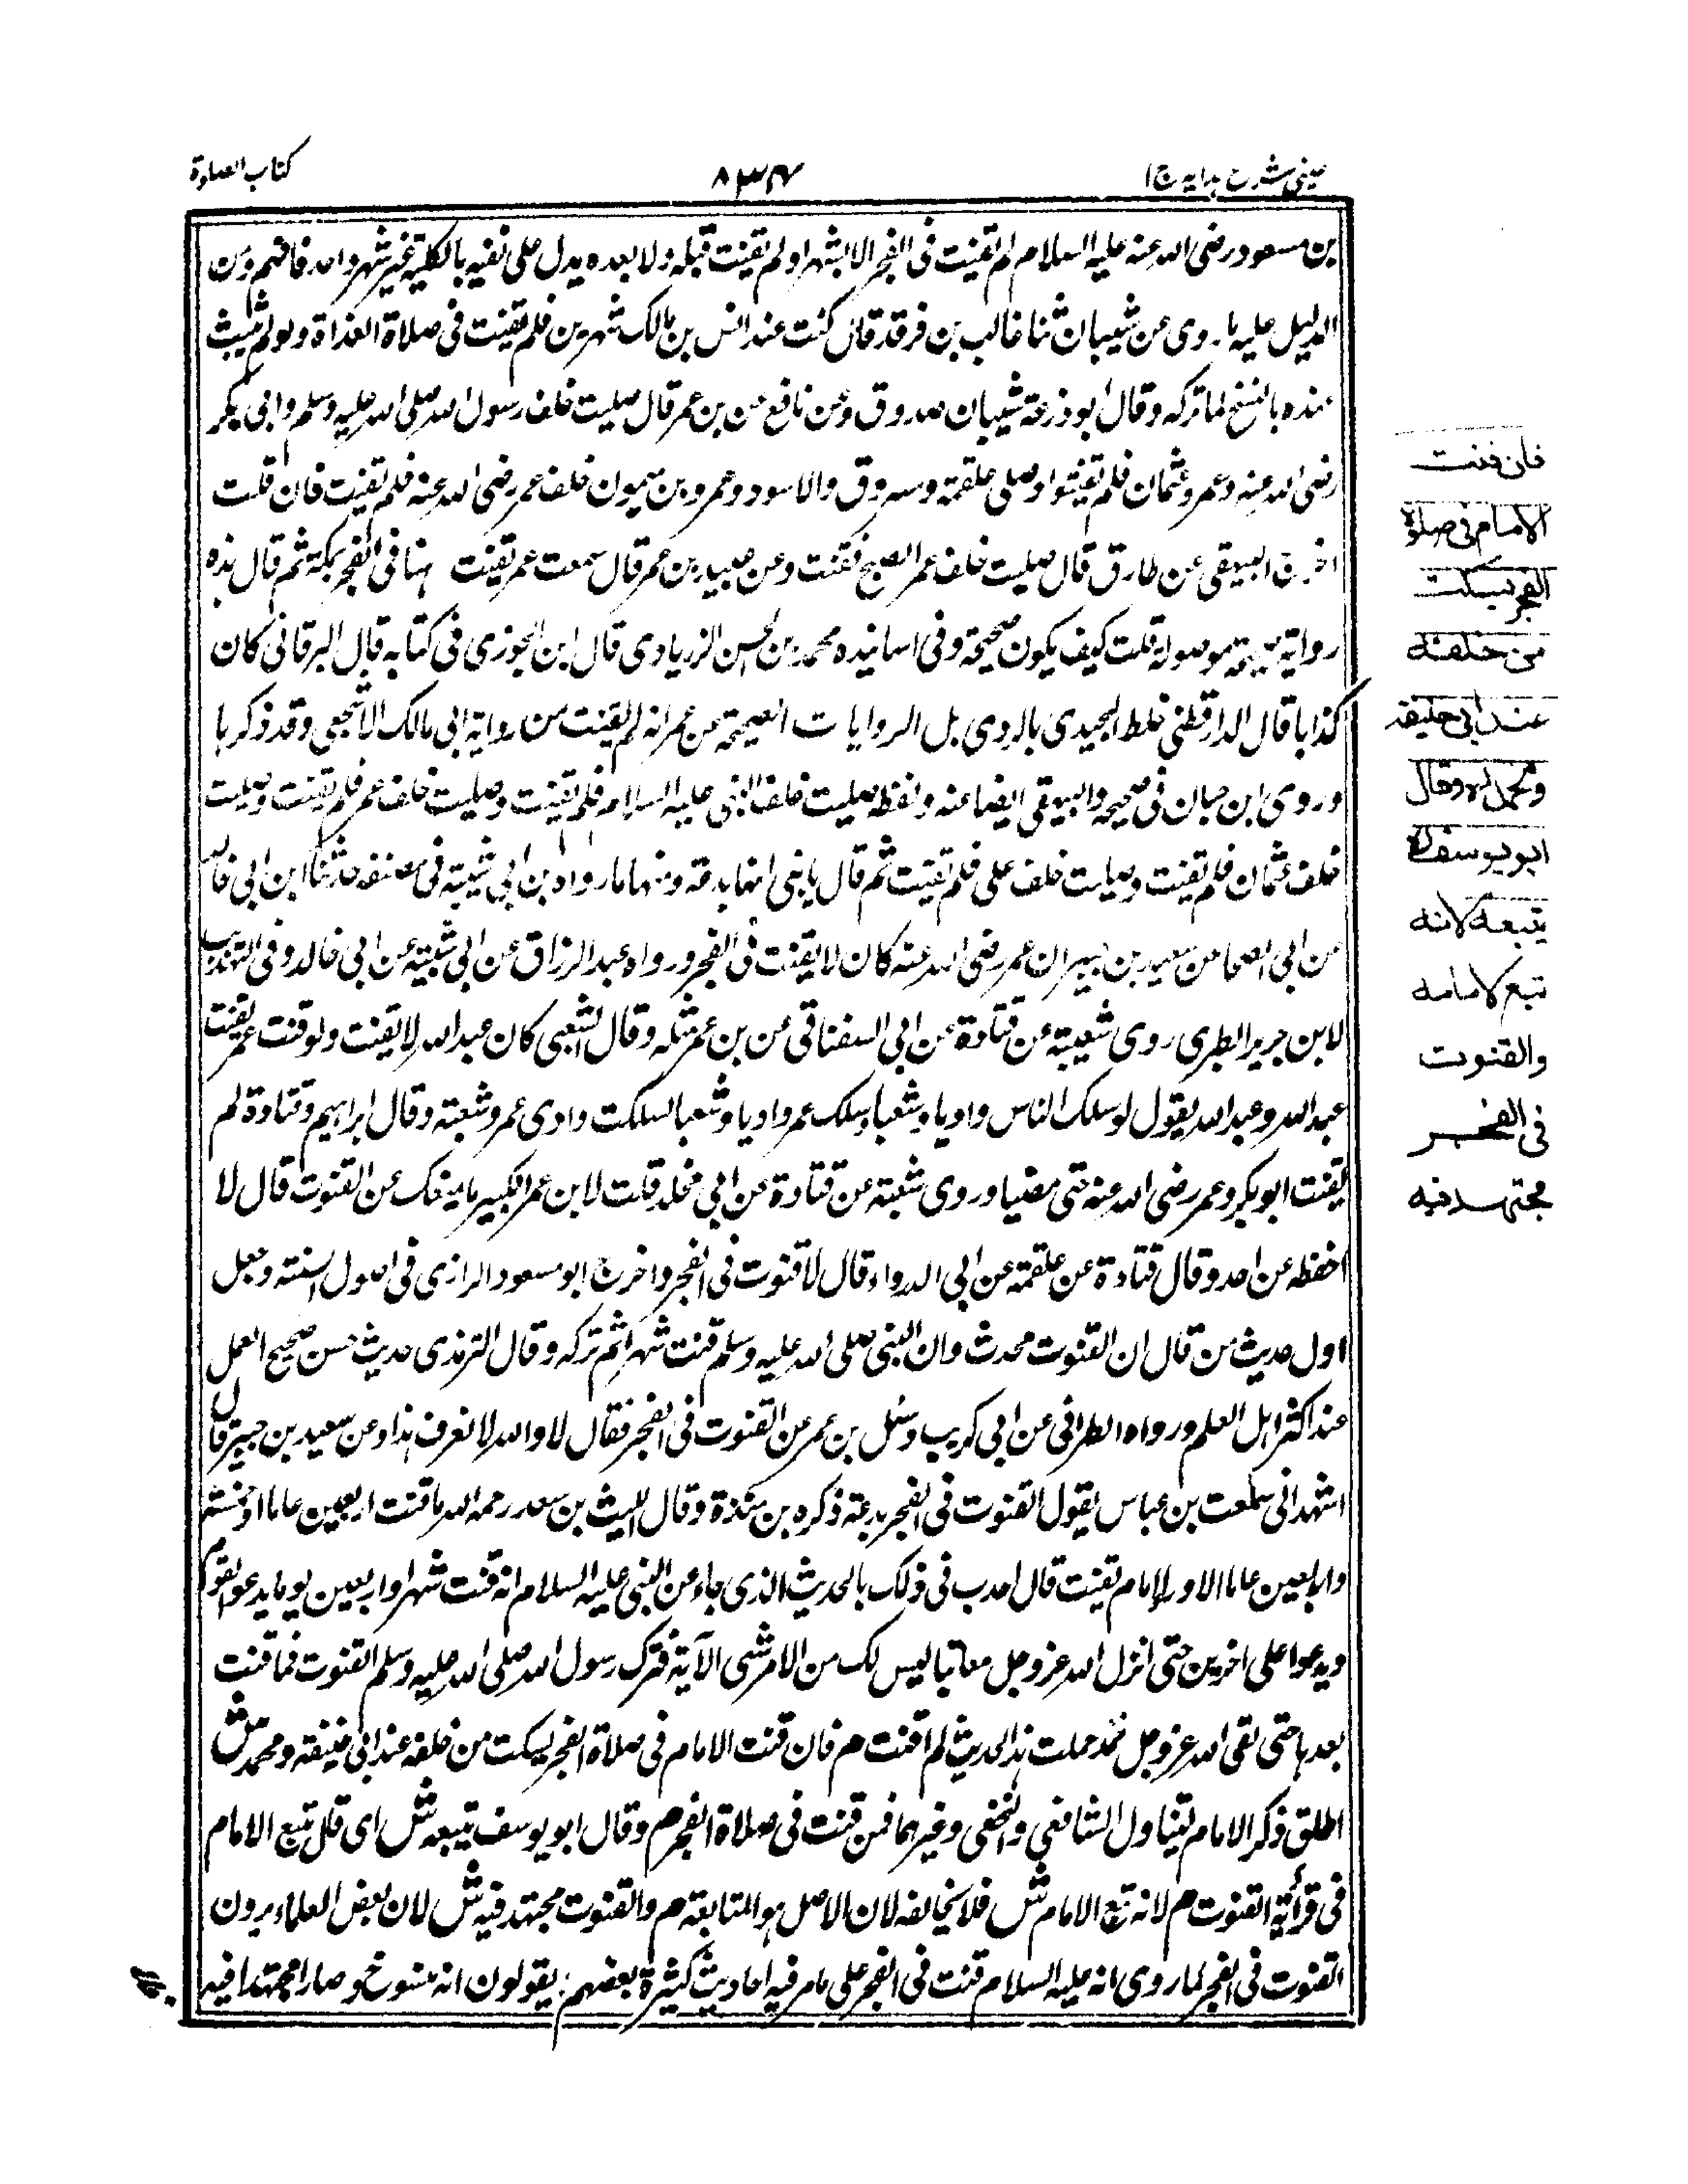 عینی شرح ہدایہ ج ا
۸۳۴
کتاب الصلوة
بن مسعود رضی اللہ عنہ علیہ السلام لم یقنت فی الفجر الا شہرا و لم یقنت قبلہ ولا بعدہ یدل علی نفیہ بالکلیۃ غیر شہر واحد فافہم ومن
الدلیل علیہ ما روی عن شیبان ثنا غالب بن فرقد قال کنت عند انس بن مالک شہرین فلم یقنت فی صلاة الغداة ولو لم یثبت
عندہ بالنسخ لما ترکہ وقال ابو ذرعۃ شیبان صدوق وعن نافع عن بن عمر قال صلیت خلف رسول اللہ صلی اللہ علیہ وسلم وابی بکر
رضی اللہ عنہ وعمر وعثمان فلم یقنتوا وصلی علقمۃ ومسروق والاسود وعمرو بن میمون خلف عمر رضی اللہ عنہ فلم یقنت فان قلت
اخرج البیہقی عن طارق قال صلیت خلف عمر الصبح فقنت وعن عبید بن عمر قال سمعت عمر یقنت ہہنا فی الفجر بمکۃ ثم قال ہذہ
روایۃ صحیحۃ موصولۃ قلت کیف یکون صحیحۃ وفی اسانیدہ محمد بن الحسن الزیادی قال ابن الجوزی فی کتابہ قال البرقانی کان
کذابا قال الدارقطنی خلط الجیدی بالردی بل الروایات الصحیحۃ عن عمر انہ لم یقنت من روایۃ ابی مالک الاشجعی وقد ذکرہا
وروی ابن حبان فی صحیحہ والبیہقی ایضا عنہ ولفظہ صلیت خلف النبی علیہ السلام فلم یقنت وصلیت خلف عمر فلم یقنت وصلیت
خلف عثمان فلم یقنت وصلیت خلف علی فلم یقنت ثم قال یا بنی انہا بدعۃ ومنہا ما رواہ بن ابی شیبۃ فی مصنفہ حدثنا ابن ابی خالد
عن ابی الضحا عن سعید بن جبیر ان عمر رضی اللہ عنہ کان لا یقنت فی الفجر ورواہ عبد الرزاق عن ابی شیبۃ عن ابی خالد وفی التہذیب
لابن جریر الطبری روی شعبۃ عن قتادة عن ابی السفناقی عن بن عمر مثلہ وقال الشعبی کان عبد اللہ لا یقنت ولو قنت عمر یقنت
عبد اللہ وعبد اللہ یقول لو سلک الناس وادیا وشعبا وسلک عمر وادیا وشعبا لسلکت وادی عمر وشعبۃ وقال ابراہیم وقتادة لم
یقنت ابو بکر وعمر رضی اللہ عنہ حتی مضیا وروی شعبۃ عن قتادة عن ابی مخلد قلت لابن عمر الکبیر ما ینعک عن القنوت قال لا
احفظہ عن احد وقال قتادة عن علقمۃ عن ابی الدرداء قال لا قنوت فی الفجر واخرج ابو مسعود الرازی فی اصول السنتہ وجعل
اول حدیث من قال ان القنوت محدث وان النبی صلی اللہ علیہ وسلم قنت شہرا ثم ترکہ وقال الترمذی حدیث حسن صحیح العمل
عند اکثر اہل العلم ورواہ الطبرانی عن ابی کریب وسئل بن عمر عن القنوت فی الفجر فقال لا واللہ لا نعرف ہذا وعن سعید بن جبیر قال
اشہد انی سمعت بن عباس یقول القنوت فی الفجر بدعۃ ذکرہ بن مندة وقال اللیث بن سعد رحمہ اللہ ما قنت اربعین عاما او خمسۃ
واربعین عاما الا وراء امام یقنت قال احدب فی ذلک بالحدیث الذی جاء عن النبی علیہ السلام انہ قنت شہرا واربعین یوما یدعو القوم
ویدعوا علی اخرین حتی انزل اللہ عز وجل معاتبا لیس لک من الامر شی الآیۃ فترک رسول اللہ صلی اللہ علیہ وسلم القنوت فما قنت
بعدہا حتی لقی اللہ عز وجل فمذ حملت ہذا الحدیث لم اقنت م فان قنت الامام فی صلاة الفجر یسکت من خلفہ عند ابی حنیفۃ ومحمد ش
اطلق ذکر الامام لیتناول الشافعی والنخعی وغیرہما فمن قنت فی صلاة الفجر م وقال ابو یوسف یتبعہ ش ای قلل تبع الامام
فی قرأیۃ القنوت م لانہ تبع الامام ش فلا یخالفہ لان الاصل ہو المتابعۃ م والقنوت مجتہد فیہ ش لان بعض العلماء یرون
القنوت فی الفجر لما روی انہ علیہ السلام قنت فی الفجر علی ما مر فیہ احادیث کثیرة بعضہم یقولون انہ منسوخ وصارا مجتہدا فیہ
فان قنت
الامام فی صلوة
الفجر یسکت
من خلفہ
عند ابی حنیفۃ
ومحمد رح وقال
ابو یوسف رح
یتبعہ لانہ
تبع لامامہ
والقنوت
فی الفجر
مجتہد فیہ